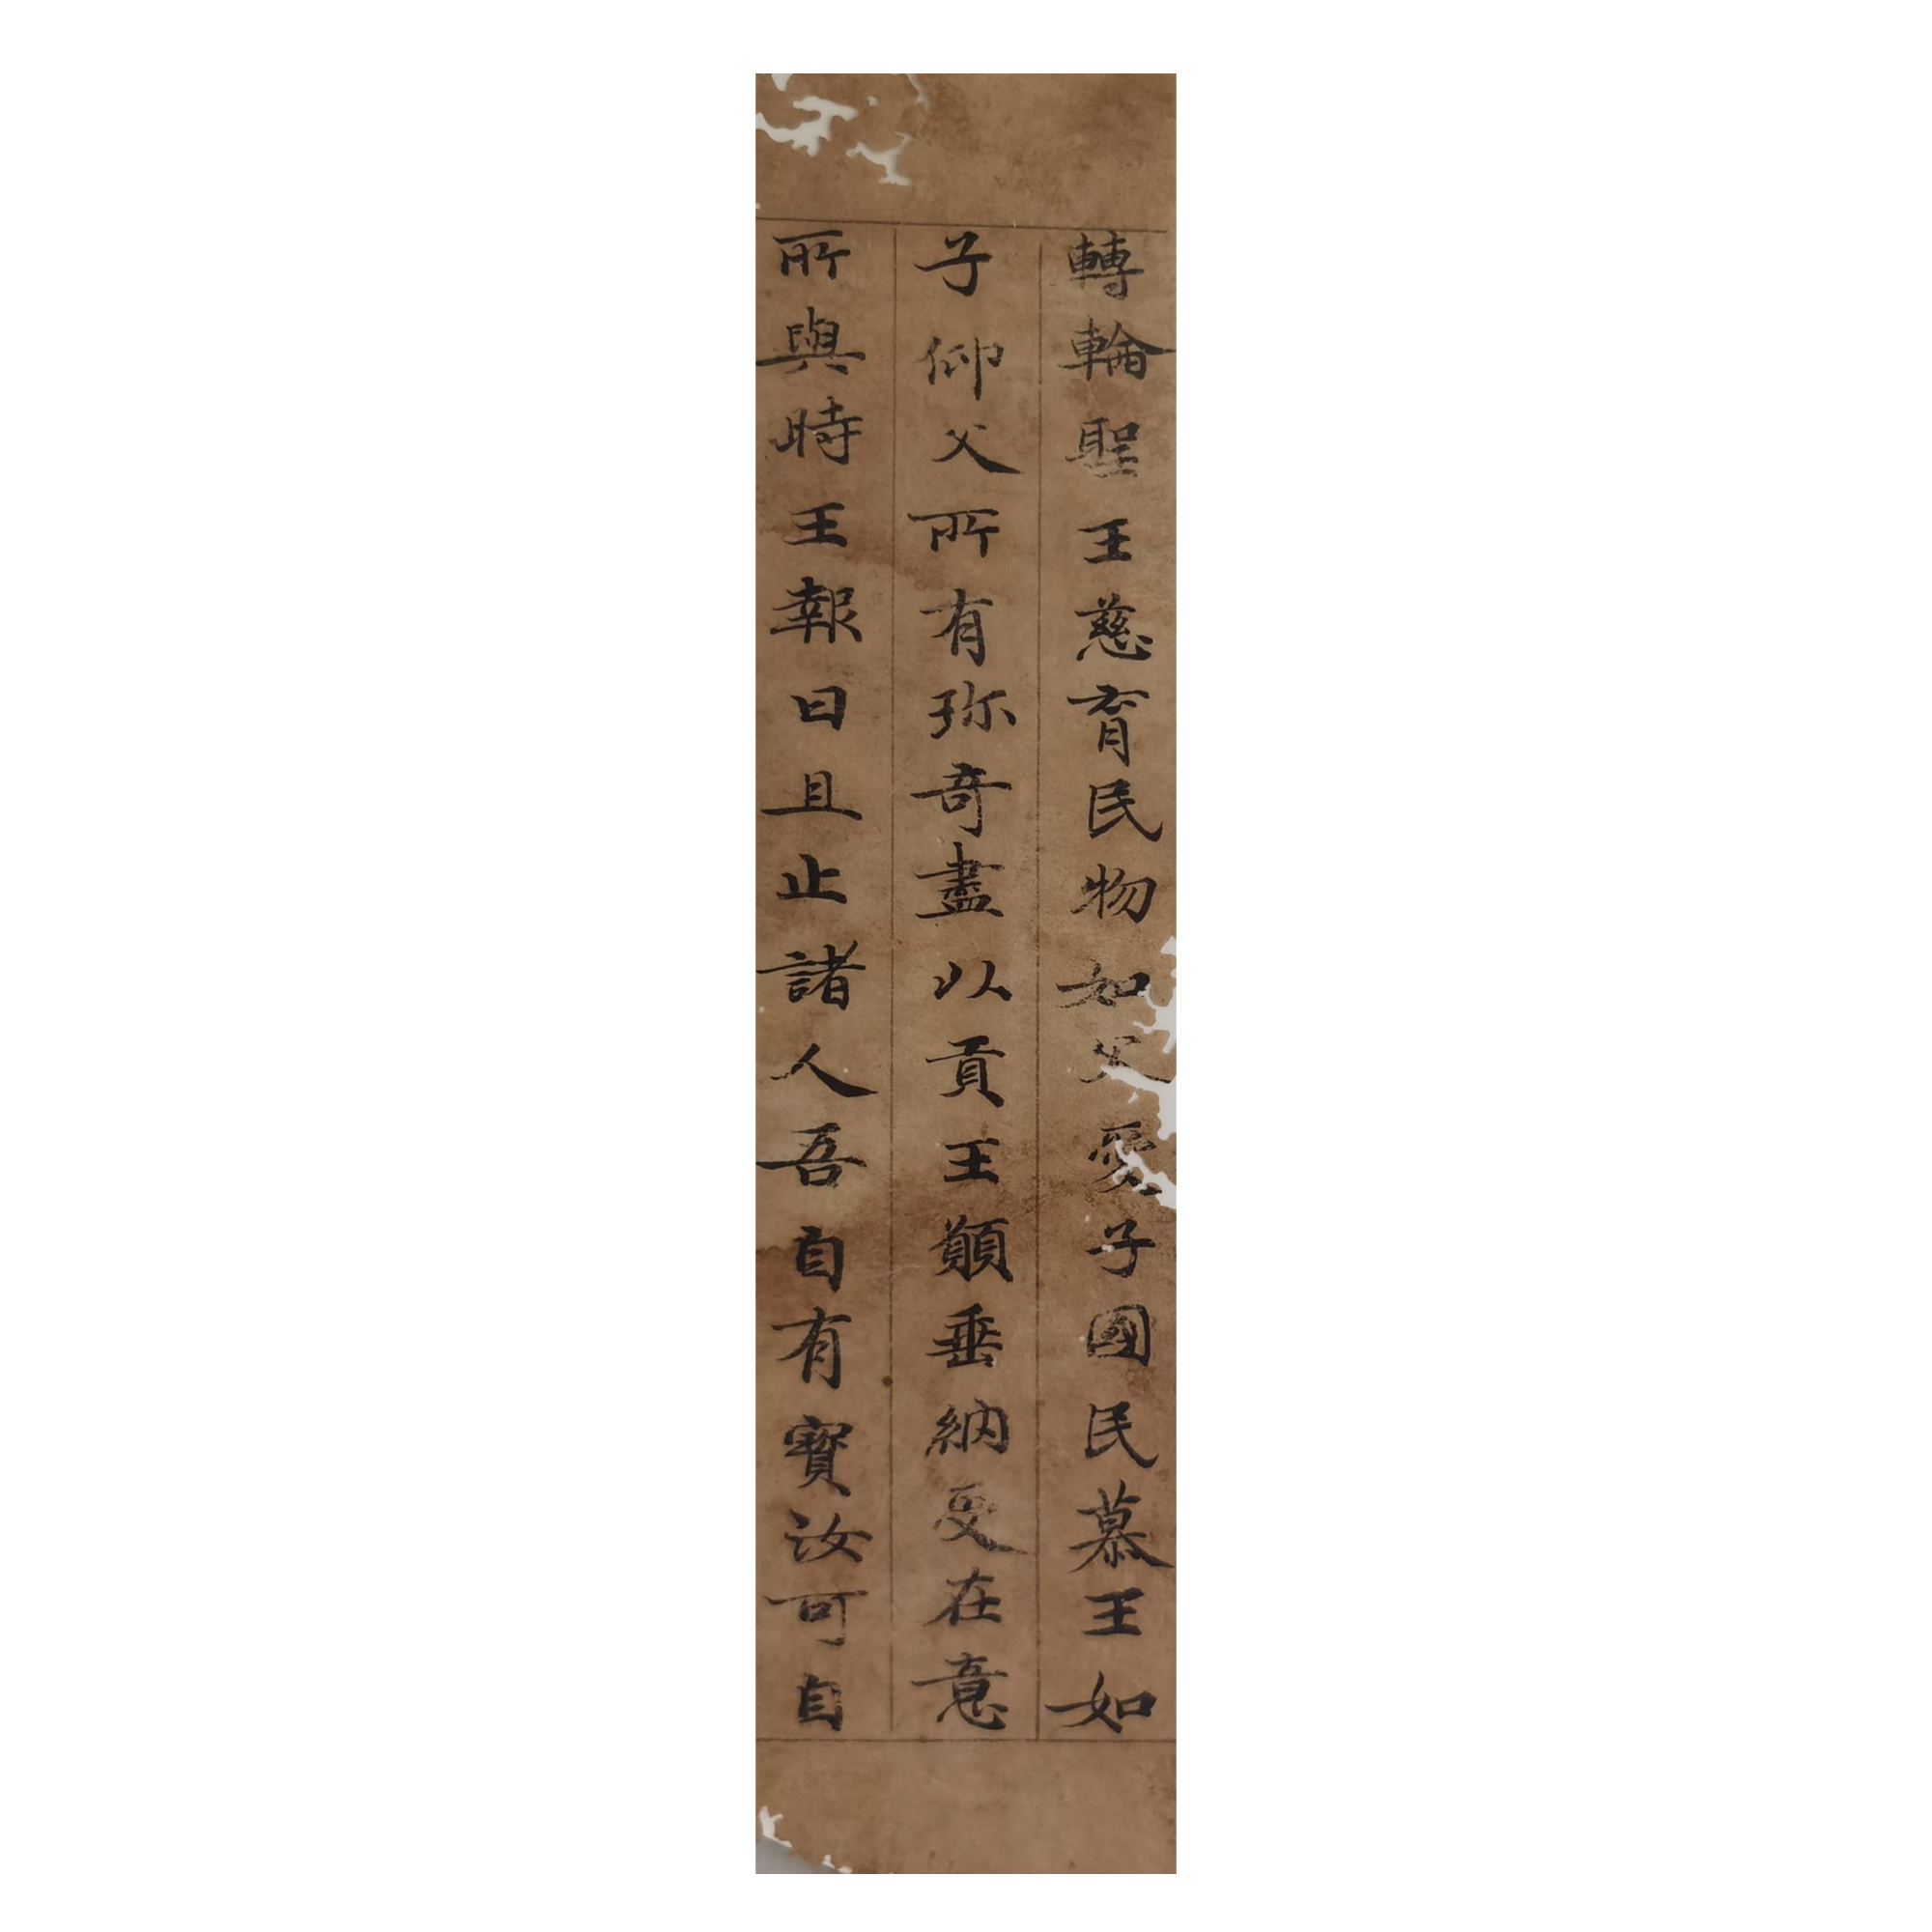 轉輪聖王慈育民物如父愛子國民慕王如
子仰父所有珎奇盡以貢王願垂納受在意
所與時王報曰且止諸人吾自有寶汝可自